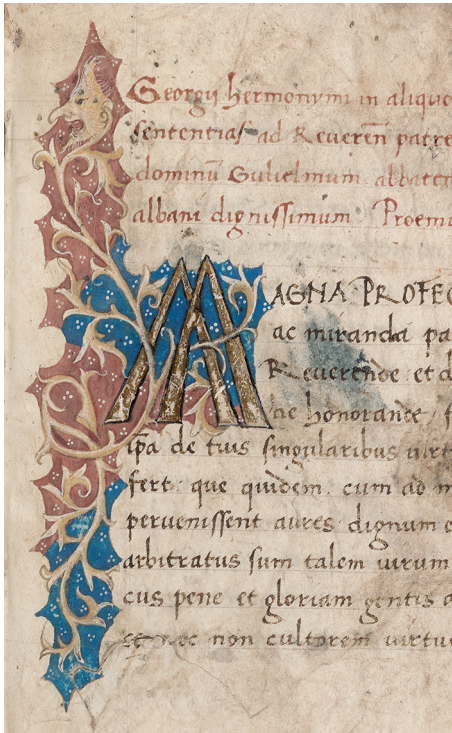 Georgii hermonymi in aliquo
sententias ad Reuereñ patre
dominũ Gulielmum abbatem
albani dignissimum Proemi
MAGNA PROFEC
ac miranda pa
Reuerende et d
ne honorande f
ip̃a de tuis singularibus uirt
fert que quidem cum ad m
peruenissent aures dignum e
arbitratus sum talem uirum
cus pene et gloriam gentis a
et nec non cultorem uirtu